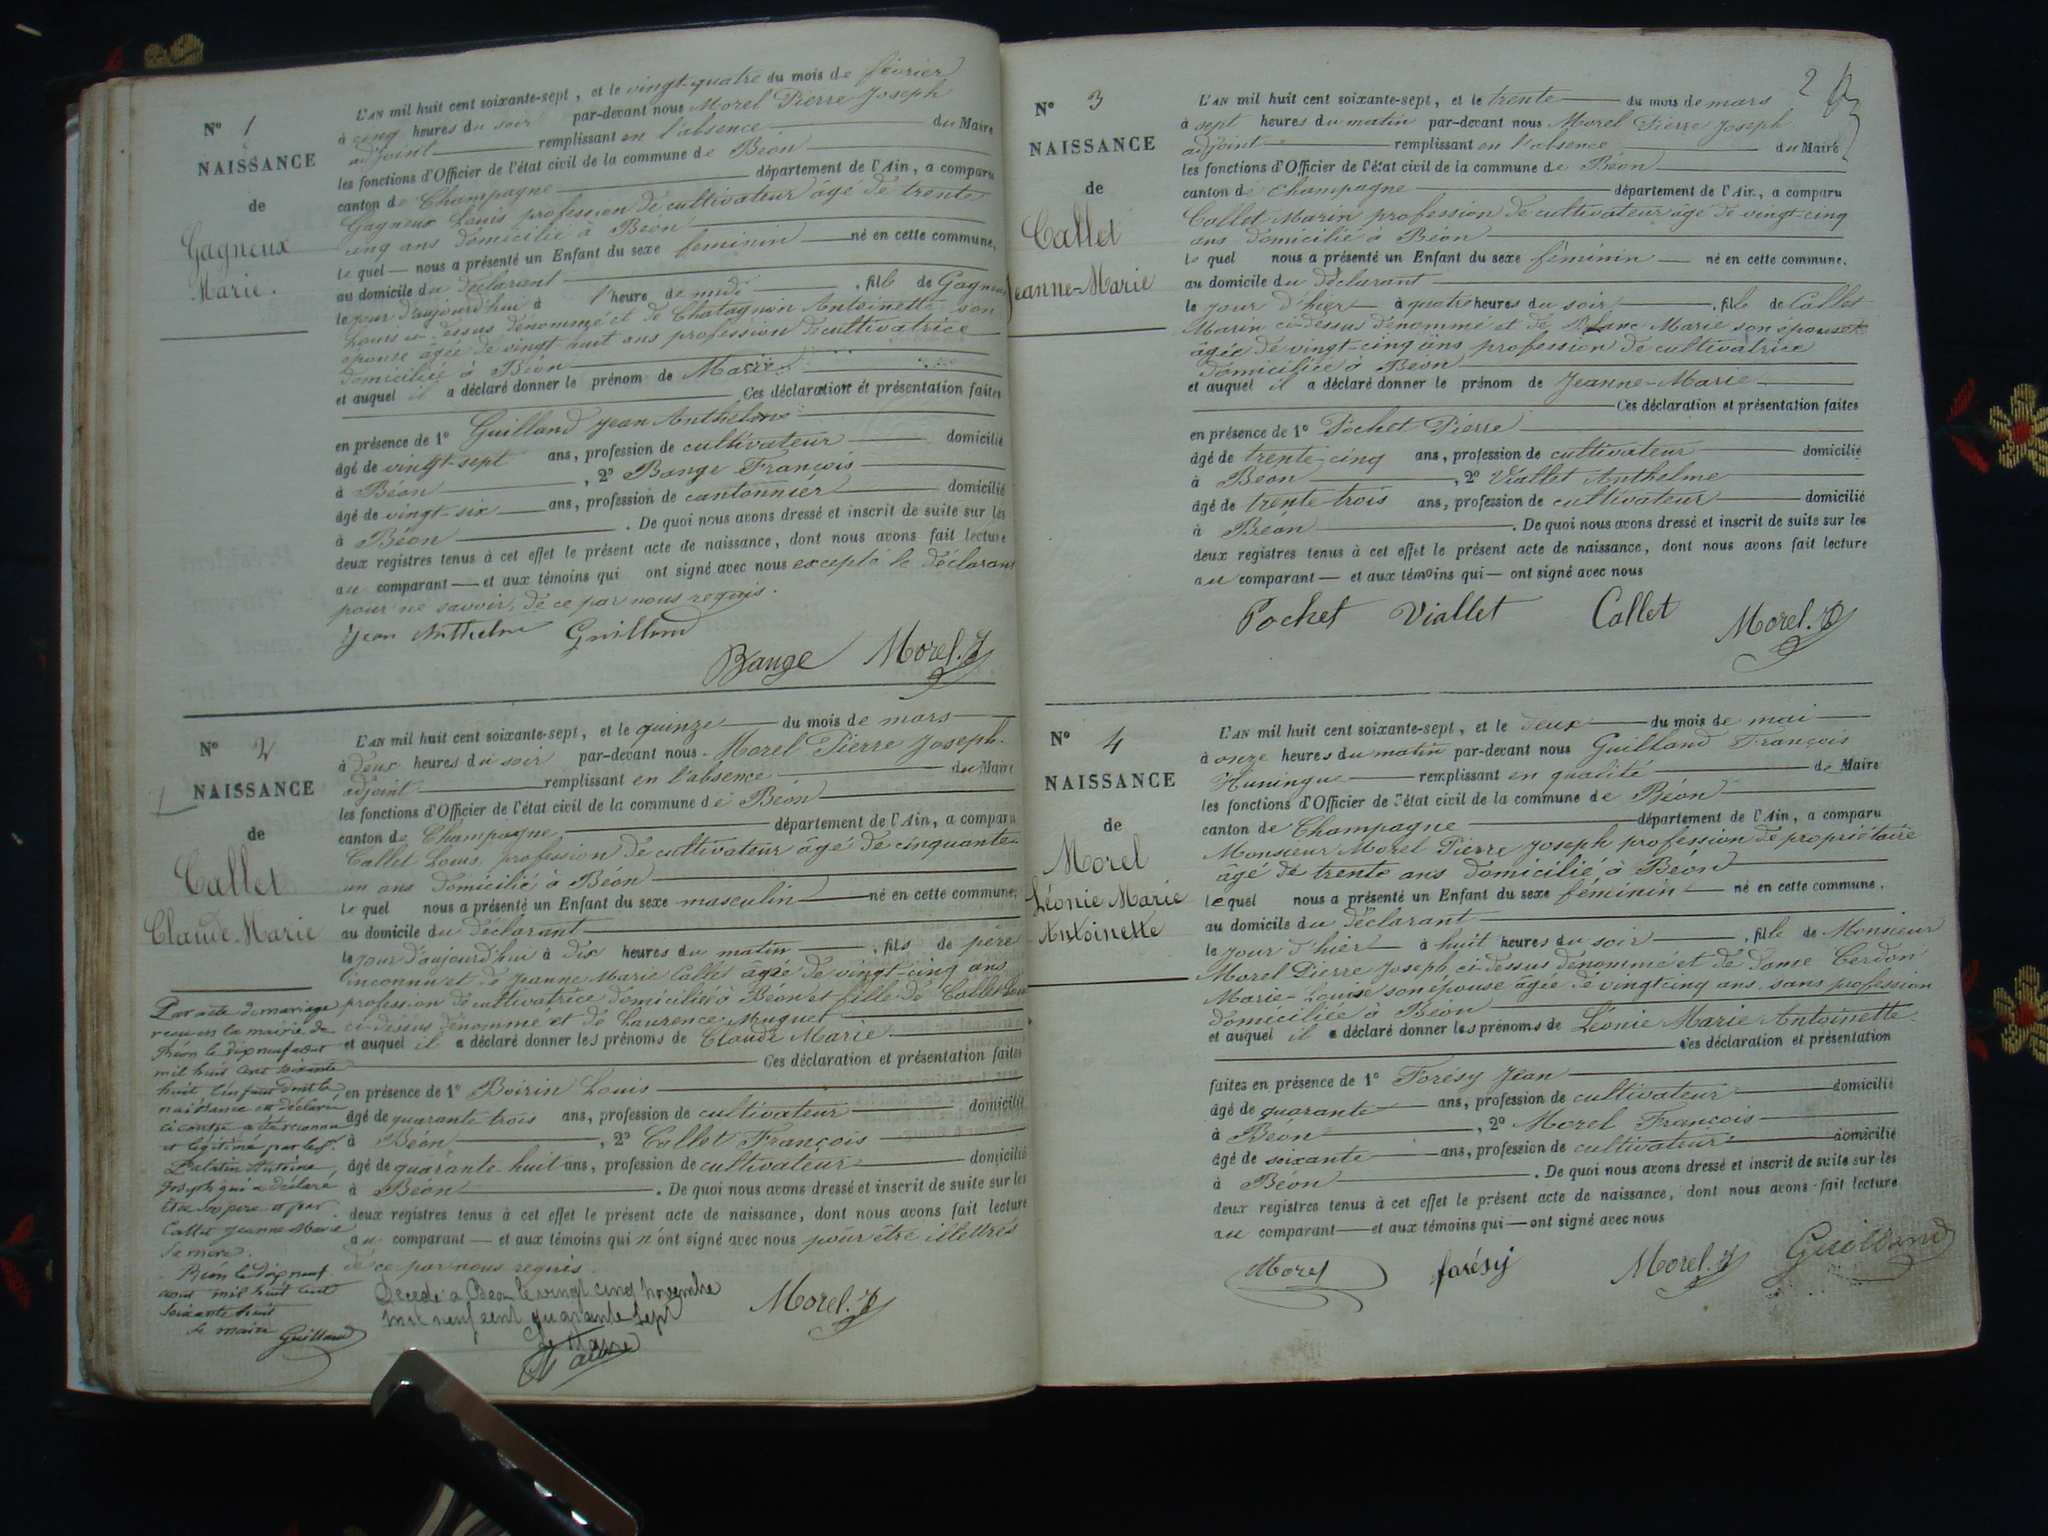 N° 1
NAISSANCE
de
Gagneux
Marie.
L'AN mil huit cent soixante-sept, et le vingt-quatre du mois de février
à cinq heures du soir par-devant nous Morel Pierre Joseph
adjoint remplissant en l'absence du Maire
les fonctions d'Officier de l'état civil de la commune de Béon
canton de Champagne département de l'Ain, a comparu
Gagneux Louis profession de cultivateur âgé de trente
cinq ans domicilié à Béon
le quel nous a présenté un Enfant du sexe feminin né en cette commune,
au domicile du déclarant
le jour d'aujourd'hui à 1 heure de midi, fille de Gagneux
Louis ci-dessus dénommé et de Chatagnon Antoinette son
épouse âgée de vingt huit ans profession de cultivatrice
domiciliée à Béon
et auquel il a déclaré donner le prénom de Marie
Ces déclaration et présentation faites
en présence de 1° Guilland Jean Anthelme
âgé de vingt-sept ans, profession de cultivateur domicilié
à Béon, 2° Bange François
âgé de vingt-six ans, profession de cantonnier domicilié
à Béon. De quoi nous avons dressé et inscrit de suite sur les
deux registres tenus à cet effet le présent acte de naissance, dont nous avons fait lecture
au comparant et aux témoins qui ont signé avec nous excepté le déclarant
pour ne savoir, de ce par nous requis.
Jean Anthelme Guilland
Bange Morel. J
N° 2
NAISSANCE
de
Callet
Claude-Marie
L'AN mil huit cent soixante-sept, et le quinze du mois de mars
à deux heures du soir par-devant nous Morel Pierre Joseph
adjoint remplissant en l'absence du Maire
les fonctions d'Officier de l'état civil de la commune de Béon
canton de Champagne, département de l'Ain, a comparu
Callet Louis profession de cultivateur âgé de cinquante
un ans domicilié à Béon
le quel nous a présenté un Enfant du sexe masculin né en cette commune,
au domicile du déclarant
le jour d'aujourd'hui à dix heures du matin, fils de père
inconnu et de Jeanne Marie Callet âgée de vingt-cinq ans
profession de cultivatrice domiciliée à Béon et fille de Callet Louis
ci-dessus dénommé et de Laurence Muguet
et auquel il a déclaré donner les prénoms de Claude Marie
Ces déclaration et présentation faites
en présence de 1° Boirin Louis
âgé de quarante trois ans, profession de cultivateur domicilié
à Béon, 2° Callet François
âgé de quarante-huit ans, profession de cultivateur domicilié
à Béon. De quoi nous avons dressé et inscrit de suite sur les
deux registres tenus à cet effet le présent acte de naissance, dont nous avons fait lecture
au comparant et aux témoins qui n'ont signé avec nous pour être illettrés
de ce par nous requis.
Morel. J
Décédé à Béon le vingt cinq novembre
mil neuf cent quarante sept
Le Maire
Par acte de mariage
reçu en la mairie de
Béon le dix neuf aout
mil huit cent soixante
huit l'enfant dont la
naissance est déclarée
ci contre a été reconnu
et légitimé par les
Palatin Antoine
Joseph qui a déclaré
être son père et par
Callet Jeanne Marie
sa mère.
Béon le dix neuf
aout mil huit cent
soixante huit
le maire Guilland
2
N° 3
NAISSANCE
de
Callet
Jeanne-Marie
L'AN mil huit cent soixante-sept, et le trente du mois de mars
à sept heures du matin par-devant nous Morel Pierre Joseph
adjoint remplissant en l'absence du Maire
les fonctions d'Officier de l'état civil de la commune de Béon
canton de Champagne département de l'Ain, a comparu
Callet Marin profession de cultivateur âgé de vingt-cinq
ans domicilié à Béon
le quel nous a présenté un Enfant du sexe féminin né en cette commune.
au domicile du déclarant
le jour d'hier à quatre heures du soir, fille de Callet
Marin ci-dessus dénommé et de Blanc Marie son épouse
âgée de vingt-cinq ans profession de cultivatrice
domiciliée à Béon
et auquel il a déclaré donner le prénom de Jeanne-Marie
Ces déclaration et présentation faites
en présence de 1° Pochet Pierre
âgé de trente-cinq ans, profession de cultivateur domicilié
à Béon, 2° Viallet Anthelme
âgé de trente trois ans, profession de cultivateur domicilié
à Béon. De quoi nous avons dressé et inscrit de suite sur les
deux registres tenus à cet effet le présent acte de naissance, dont nous avons fait lecture
au comparant et aux témoins qui ont signé avec nous
Pochet Viallet Callet Morel. J
N° 4
NAISSANCE
de
Morel
Léonie Marie
Antoinette
L'AN mil huit cent soixante-sept, et le deux du mois de mai
à onze heures du matin par-devant nous Guilland François
Huningue remplissant en qualité de Maire
les fonctions d'Officier de l'état civil de la commune de Béon
canton de Champagne département de l'Ain, a comparu
Monsieur Morel Pierre Joseph profession de propriétaire
âgé de trente ans domicilié à Béon
le quel nous a présenté un Enfant du sexe féminin né en cette commune.
au domicile du déclarant
le jour d'hier à huit heures du soir, fille de Monsieur
Morel Pierre Joseph ci-dessus dénommé et de dame Cerdon
Marie-Louise son épouse âgée de vingt cinq ans sans profession
domiciliée à Béon
et auquel il a déclaré donner les prénoms de Léonie Marie Antoinette
Ces déclaration et présentation
faites en présence de 1° Forésy Jean
âgé de quarante ans, profession de cultivateur domicilié
à Béon, 2° Morel François
âgé de soixante ans, profession de cultivateur domicilié
à Béon. De quoi nous avons dressé et inscrit de suite sur les
deux registres tenus à cet effet le présent acte de naissance, dont nous avons fait lecture
au comparant et aux témoins qui ont signé avec nous
Morel forésy Morel. J Guilland